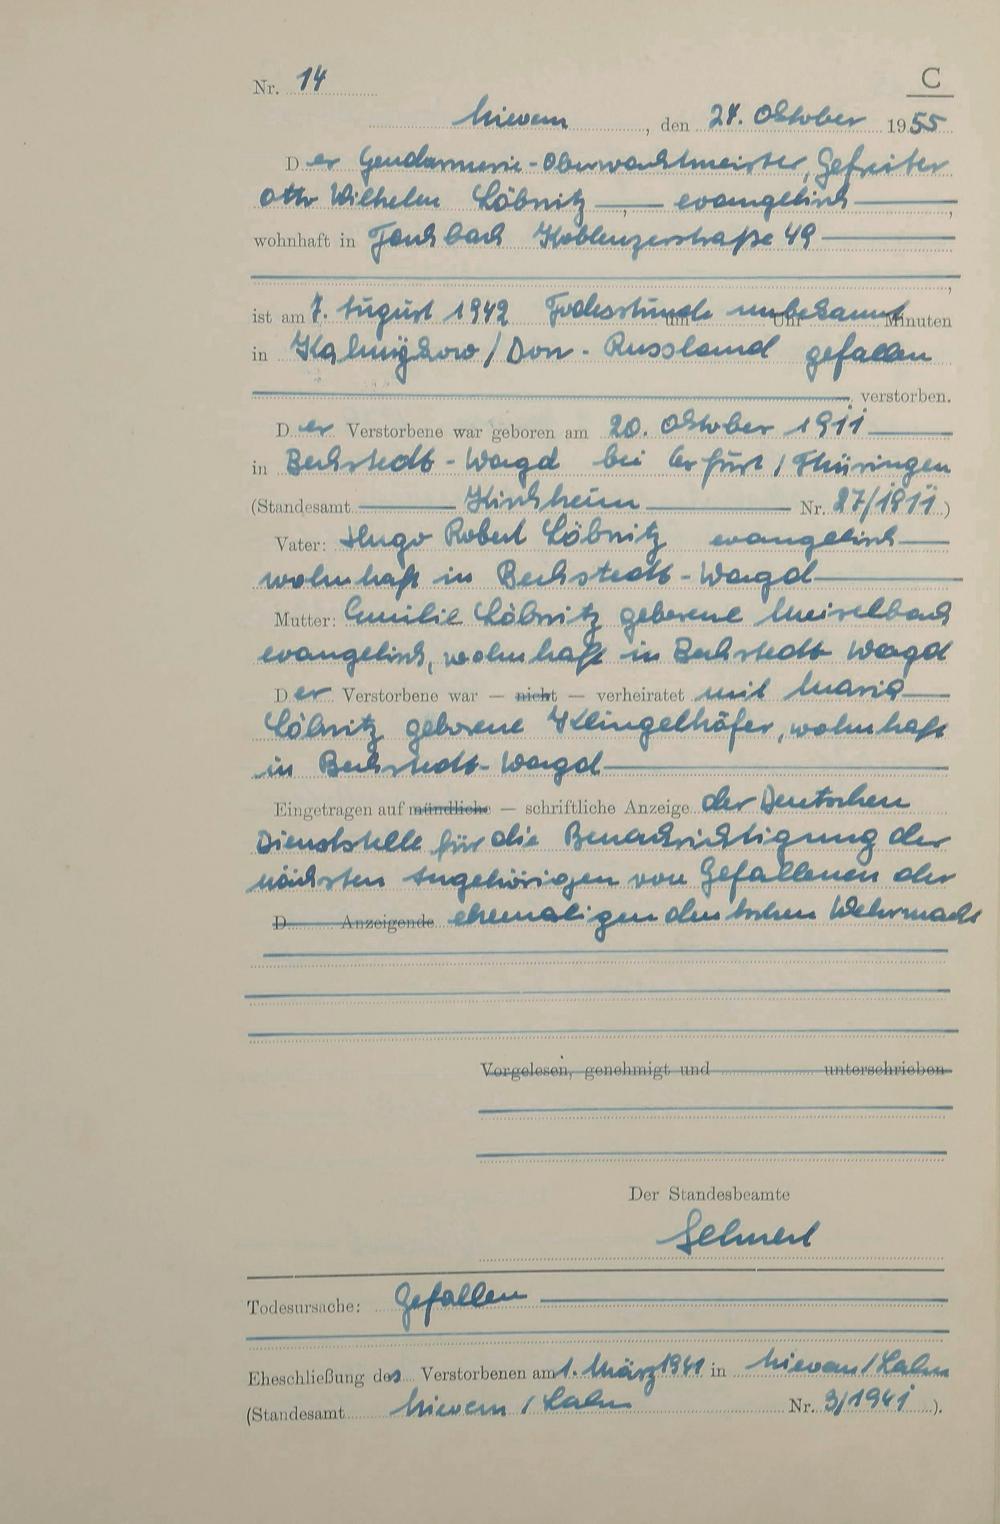 C
Nr. 14
Nievern, den 24. Oktober 1955
Der Gendarmerie-Oberwachtmeister, Gefreiter
Otto Wilhelm Löbnitz —,— evangelisch —,
wohnhaft in Fachbach Koblenzerstraße 49
,
ist am 7. August 1942 Todesstunde unbekannt um Uhr Minuten
in Kalmÿkow / Don - Russland gefallen
verstorben.
Der Verstorbene war geboren am 20. Oktober 1911
in Bechstedt-Wagd bei Erfurt / Thüringen
(Standesamt Kirchheim Nr. 27/1911)
Vater: Hugo Robert Löbnitz evangelisch
wohnhaft in Bechstedt-Wagd
Mutter: Emilie Löbnitz geborene Meiselbach
evangelisch, wohnhaft in Bechstedt Wagd
Der Verstorbene war — nicht — verheiratet mit Maria
Löbnitz geborene Klingelhöfer, wohnhaft
in Bechstedt-Wagd
Eingetragen auf mündliche — schriftliche Anzeige der Deutschen
Dienststelle für die Benachrichtigung der
nächsten Angehörigen von Gefallenen der
D Anzeigende ehemaligen deutschen Wehrmacht
Vorgelesen, genehmigt und unterschrieben
Der Standesbeamte
Todesursache: Gefallen
Eheschließung des Verstorbenen am 1. März 1941 in Nievern / Lahn
(Standesamt Nievern / Lahn Nr. 3/1941).